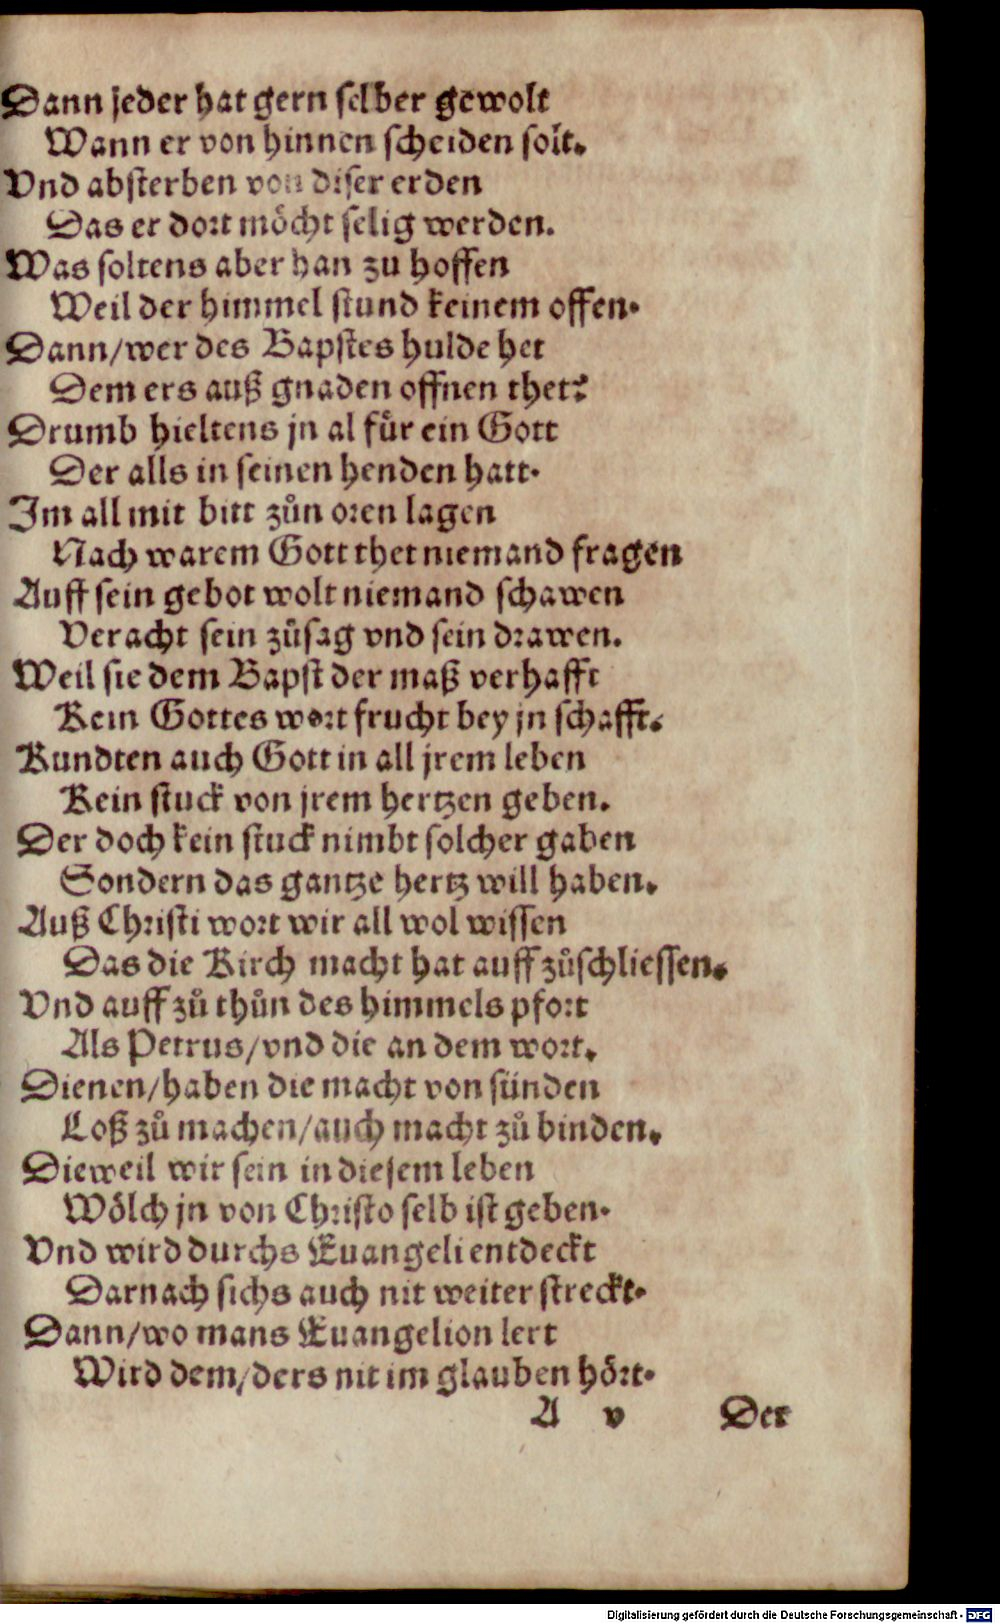 Dann jeder hat gern selber gewolt
Wann er von hinnen scheiden solt.
Vnd absterben von diser erden
Das er dort möcht selig werden.
Was soltens aber han zu hoffen
Weil der himmel stund keinem offen.
Dann/wer des Bapstes hulde het
Dem ers auß gnaden offnen thet:
Drumb hieltens jn al fuͤr ein Gott
Der alls in seinen henden hatt.
Im all mit bitt zůn oren lagen
Nach warem Gott thet niemand fragen
Auff sein gebot wolt niemand schawen
Veracht sein zůsag vnd sein drawen.
Weil sie dem Bapst der maß verhafft
Kein Gottes wort frucht bey jn schafft.
Kundten auch Gott in all jrem leben
Kein stuck von jrem hertzen geben.
Der doch kein stuck nimbt solcher gaben
Sondern das gantze hertz will haben.
Auß Christi wort wir all wol wissen
Das die Kirch macht hat auff zůschliessen.
Vnd auff zů thůn des himmels pfort
Als Petrus/vnd die an dem wort.
Dienen/haben die macht von sünden
Loß zů machen/auch macht zů binden.
Dieweil wir sein in diesem leben
Wölch jn von Christo selb ist geben.
Vnd wird durchs Euangeli entdeckt
Darnach sichs auch nit weiter streckt.
Dann/wo mans Euangelion lert
Wird dem/ders nit im glauben hört.
A v Der
Digitalisierung gefördert durch die Deutsche Forschungsgemeinschaft - DFG